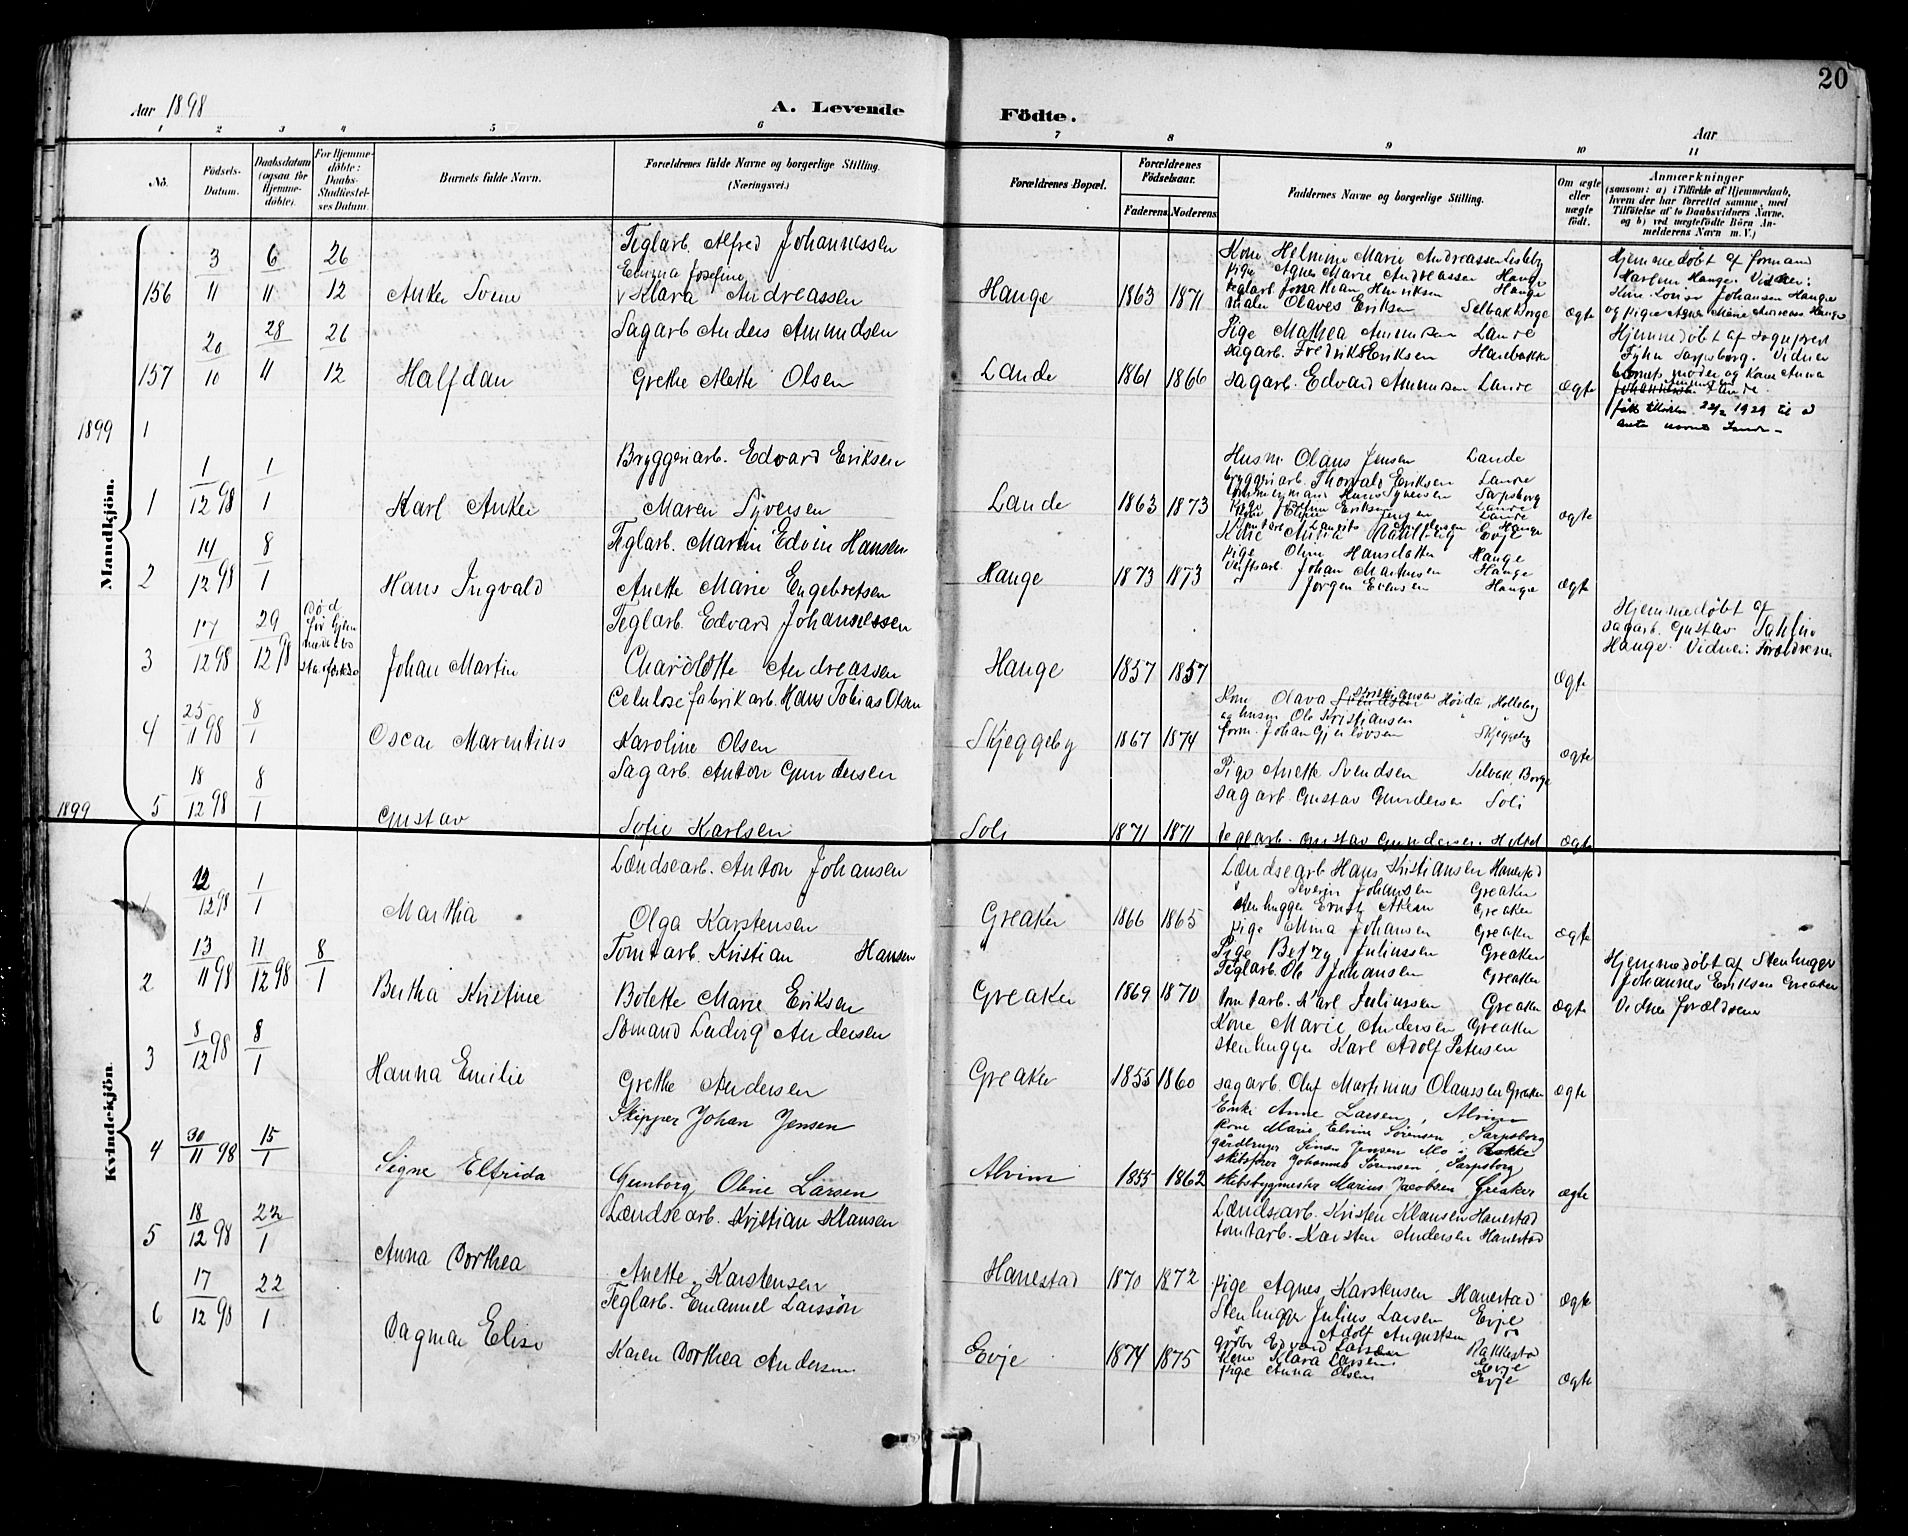 20
Aar 1898
A. Levende Fødte.
Aar
1 2 3 4 5 6 7 8 9 10 11
No.
Fødsels-Datum.
Daabsdatum (ogsaa for Hjemme-døbte).
For Hjemme-døbte: Daabs-Stadfæstel-ses Datum.
Barnets fulde Navn.
Forældrenes fulde Navne og borgerlige Stilling. (Næringsvei.)
Forældrenes Bopæl.
Forældrenes Fødselsaar.
Faderens Moderens
Faddernes Navne og borgerlige Stilling.
Om ægte eller uægte født.
Anmærkninger
(saasom: a) i Tilfælde af Hjemmedaab, hvem der har forrettet samme, med Tilføielse af to Daabsvidners Navne, og b) ved uægtefødte Børn An-melderens Navn m. V.)
Mandkjøn.
156 3/11 6/11 26/12 Anker Svene
Teglarb. Alfred Johannessen
Emma Josefine
Klara Andreassen
Hauge 1863 1871
Kone Helmine Marie Andreassen Lisleby
Pige Agnes Marie Andreassen Hauge
Teglarb. Jonathan Henriksen Hauge
Maler Olaves Eriksen Selbak Borge
ægte
Hjemmedøbt af formand
Harlem Hauge. Vidner:
Kone Lovise Johansen Hauge
og pige Agnes Marie Andreasen Hauge
157 20/10 28/11 26/12 Halfdan
Sagarb. Anders Amundsen
Grethe Alette Olsen
Lande 1861 1866
Pige Mathea Amundsen Lande
Sagarb. Fredrik Eriksen
Sagarb. Edvard Amundsen Lande
ægte
Hjemmedøbt af Sognepræst
Fyhn Sarpsborg. Vidner
barnets moder og Kone Anna
Lande
1899 1
1 1/12 98 1/1 Karl Anker
Bryggeriarb. Edvard Eriksen
Maren Syversen
Lande 1863 1873
Husm. Olaus Jensen Lande
Bryggeriarb. Thorvald Eriksen Lande
Tømmermand Hans Syversen Sarpsborg
ægte
2 14/12 98 8/1 Hans Ingvald
Teglarb. Martin Edvin Hansen
Anette Marie Engebretsen
Hauge 1873 1873
Pige Oline Hansdatter Hauge
Verftsarb. Johan Martinsen Hauge
Jørgen Evensen Hauge
ægte
3 17/12 98 29/12 98 Død før
Johan Martin
Teglarb. Edvard Johannessen
Charlotte Andreassen
Hauge 1857 1857
ægte
Hjemmedøbt af
Sagarb. Gustav Dahlin
Hauge. Vidner: Forældrene
4 25/11 98 8/1 Oscar Marentius
Celulosefabrikarb. Hans Tobias Olsen
Karoline Olsen
Skjeggeby 1867 1874
Kone Olava Kristiansen
og husm. Ole Kristiansen
form. Johan Gjerløvsen Skjeggeby
ægte
5 18/12 98 8/1 Gustav
Sagarb. Anton Gundersen
Sofie Karlsen
Soli 1871 1871
Pige Anette Svendsen Selbak Borge
Sagarb. Gustav Gundersen Soli
Teglarb. Gustav Gundersen
ægte
1899
Kvindekjøn.
1 12/12 98 1/1 Marthia
Lændsearb. Anton Johansen
Olga Karstensen
Greaker 1866 1865
Lændsearb. Hans Kristiansen Hanestad
Severin Johansen Greaker
Stenhugger Ernst Greaker
Pige Emma Johansen Greaker
ægte
2 13/11 98 11/12 98 8/1 Bertha Kristine
Tomtarb. Kristian Hansen
Bolette Marie Eriksen
Greaker 1869 1870
Pige Betzy Juliussen Greaker
Teglarb. Ole Johansen Greaker
Tomtarb. Karl Juliussen Greaker
ægte
Hjemmedøbt af Stenhugger
Johannes Eriksen Greaker
Vidner Forældrene
3 8/12 98 8/1 Hanna Emilie
Sømand Ludvig Andersen
Grethe Andersen
Greaker 1855 1860
Kone Marie Andersen Greaker
Stenhugger Karl Adolf Petersen
Sagarb. Oluf Martinius Olaussen Greaker
ægte
4 30/11 98 15/1 Signe Elfrida
Skipper Johan Jensen
Gunborg Oline Larsen
Alvim 1855 1862
Enke Anne Larsen, Alvim
Kone Marie Elvine Sørensen, Sarpsborg
Gårdbruger Simen Jensen Mo i Rakke
Skibsfører Johannes Sørensen, Sarpsborg
Skibsbygmester Marius Jacobsen, Greaker
ægte
5 18/12 98 22/1 Anna Dorthea
Lændsearb. Kristian Klausen
Anette Karstensen
Hanestad 1870 1872
Lændsearb. Kristen Klausen Hanestad
Tomtarb. Karsten Andersen Hanestad
Pige Agnes Karstensen Hanestad
ægte
6 17/12 98 22/1 Dagmar Elise
Teglarb. Emanuel Larssøn
Karen Dorthea Andersen
Evje 1874 1875
Stenhugger Julius Larsen Evje
Adolf Augustsen
Edvard Larsen Rakkestad
Kone Klara Larsen Evje
Pige Anna Olsen Evje
ægte